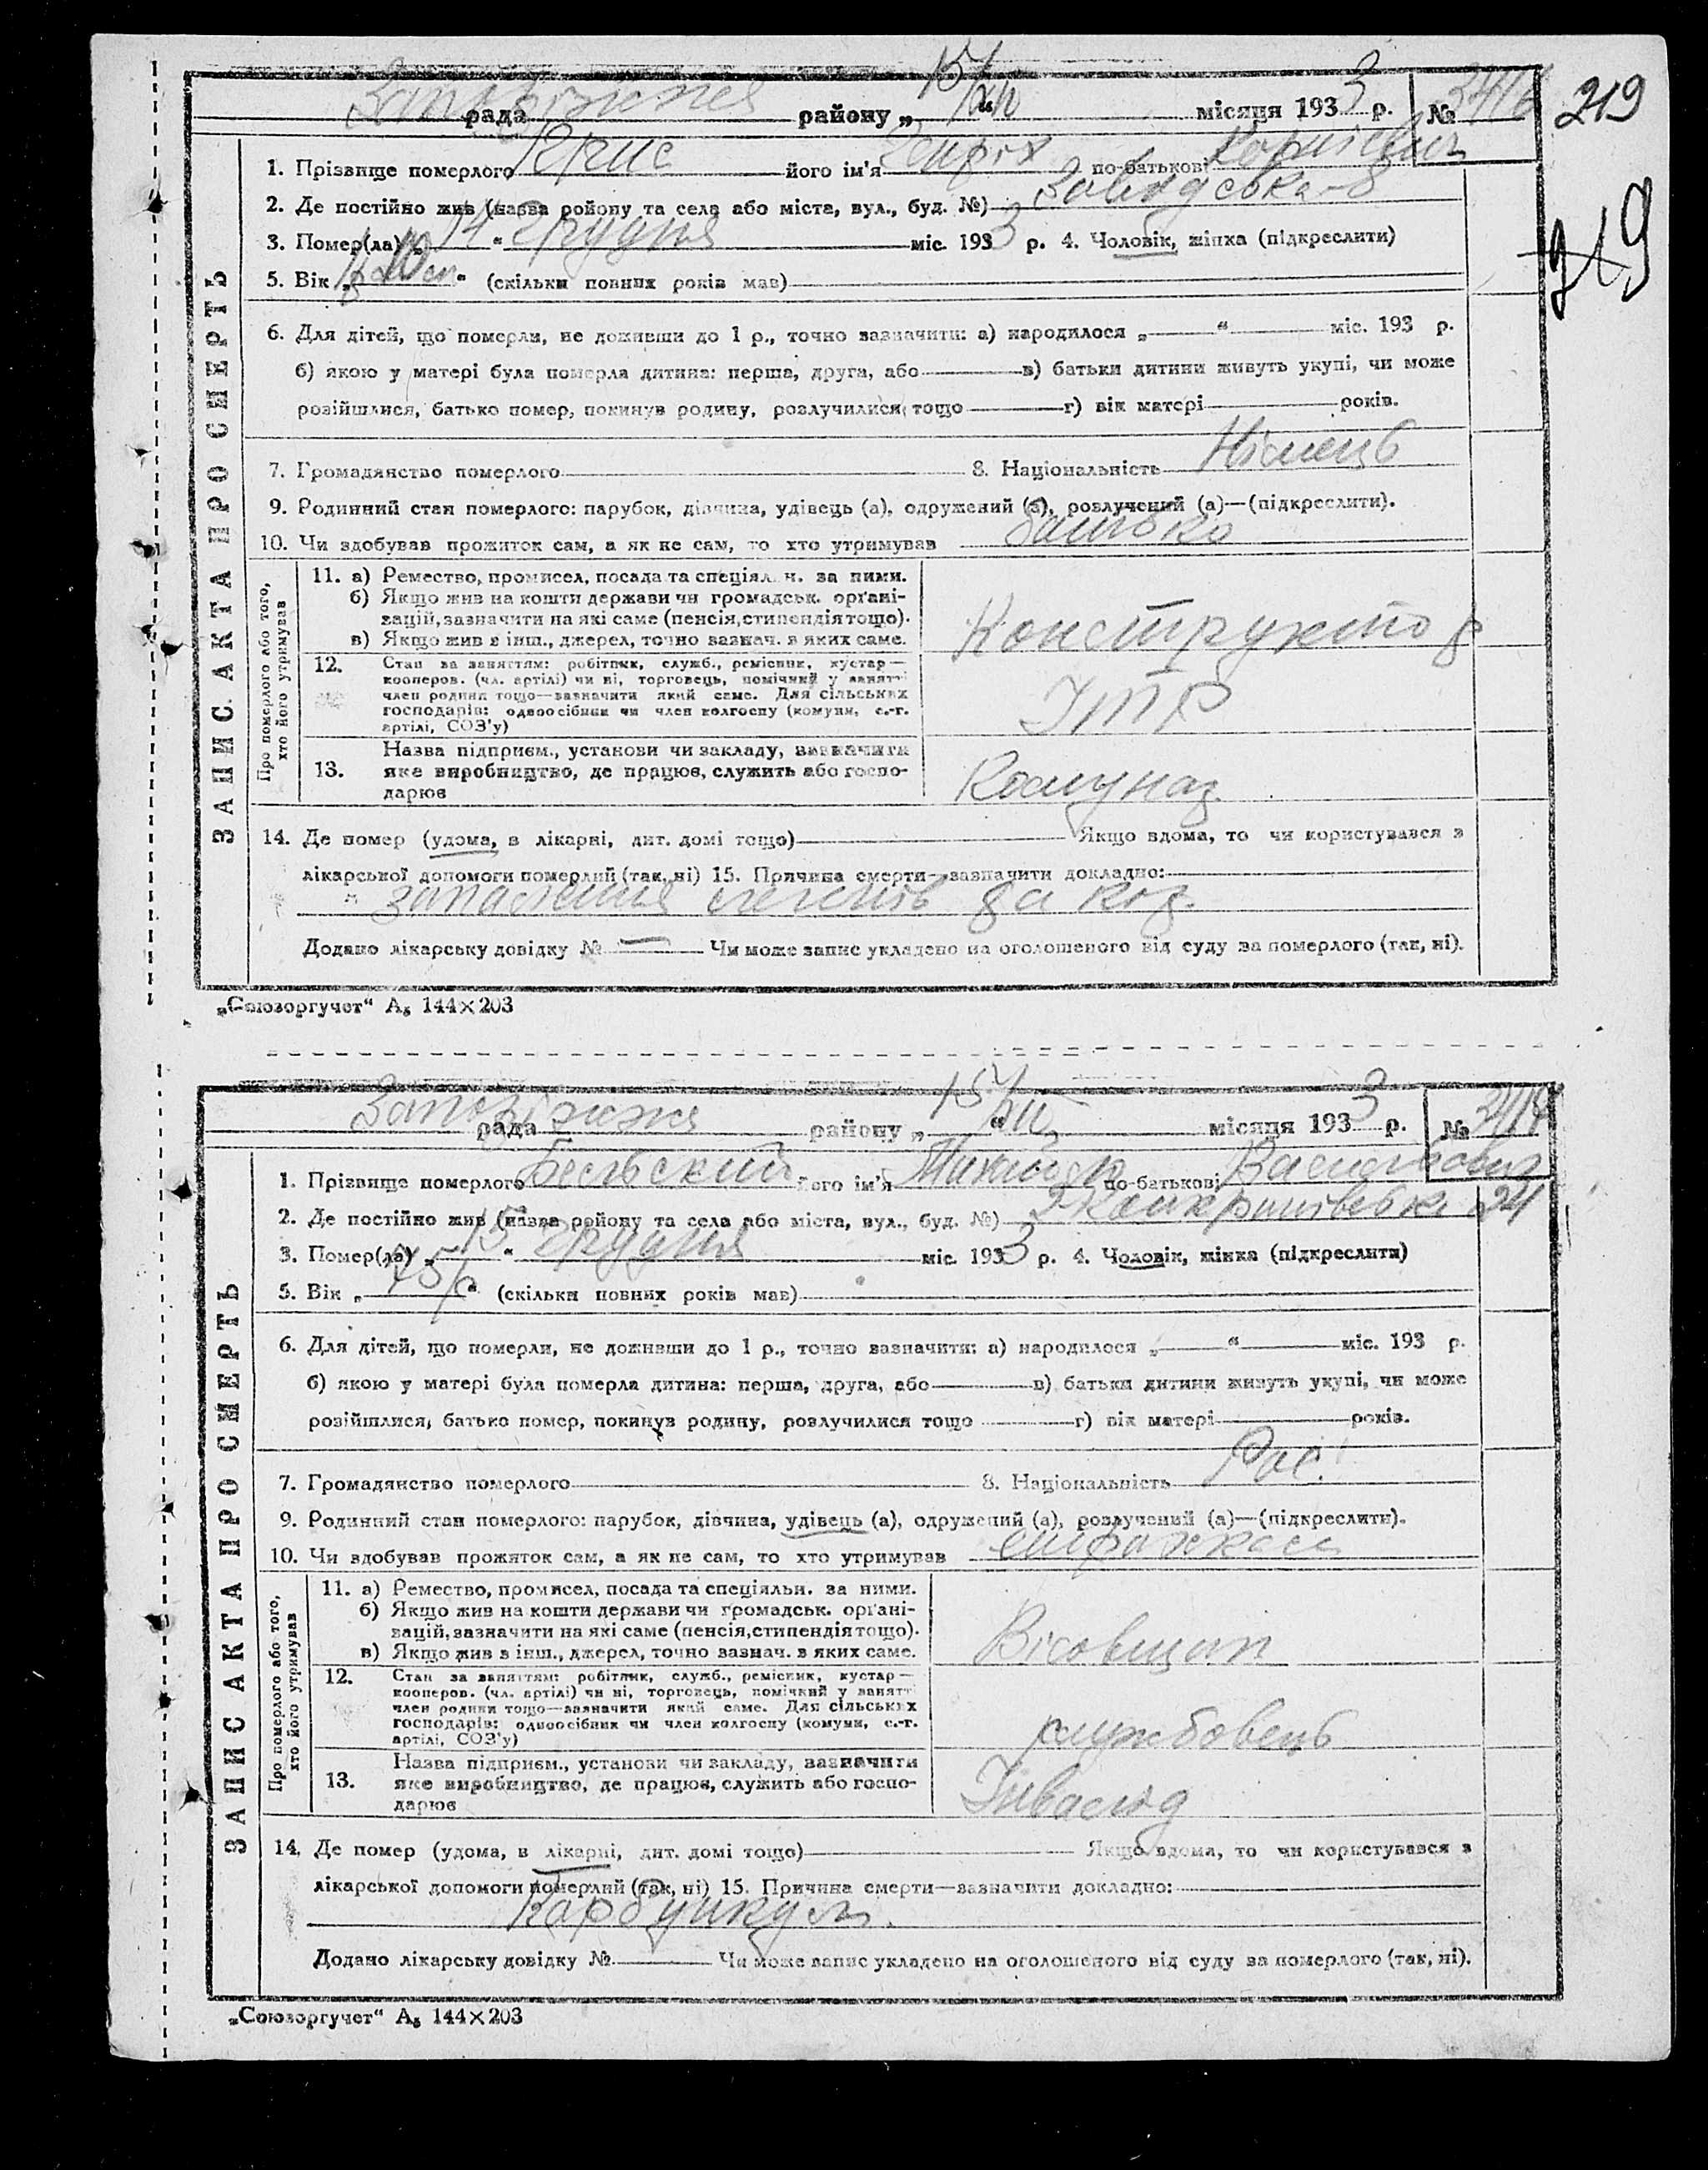 219
Запоріжжя рада району „15/XII“ місяця 1933 р. № 3416
219
ЗАПИС АКТА ПРО СМЕРТЬ
1. Прізвище померлого його ім'я Генріх по-батькові Корнієвич
2. Де постійно жив (назва району та села або міста, вул., буд. №) Заводська-8
3. Помер(ла) „14“ Грудня міс. 1933 р. 4. Чоловік, жінка (підкреслити)
5. Вік „ “ (скільки повних років мав)
6. Для дітей, що померли, не доживши до 1 р., точно зазначити: а) народилося „ “ міс. 193 р.
б) якою у матері була померла дитина: перша, друга, або в) батьки дитини живуть укупі, чи може
розійшлися, батько помер, покинув родину, розлучилися тощо г) вік матері років.
7. Громадянство померлого 8. Національність Німець
9. Родинний стан померлого: парубок, дівчина, удівець (а), одружений (а), розлучений (а)—(підкреслити).
10. Чи здобував прожиток сам, а як не сам, то хто утримував батько
Про померлого або того, хто його утримував
11. а) Ремество, промисел, посада та спеціяльн. за ними.
б) Якщо жив на кошти держави чи громадськ. органі-
зацій, зазначити на які саме (пенсія, стипендія тощо).
в) Якщо жив з інш., джерел, точно зазнач. з яких саме.
Конструктор
12. Стан за заняттям: робітник, служб., ремісник, кустар—
кооперов. (чл. артілі) чи ні, торговець, помічний у занятті
член родини тощо—зазначити який саме. Для сільських
господарів: одноосібник чи член колгоспу (комуни, с.-г.
артілі, СОЗ'у)
ІТР
13. Назва підприєм., установи чи закладу, зазначити
яке виробництво, де працює, служить або госпо-
дарює
Комунар
14. Де помер (удома, в лікарні, дит. домі тощо) Якщо вдома, то чи користувався з
лікарської допомоги померлий (так, ні) 15. Причина смерти—зазначити докладно:
запалення легенів
Додано лікарську довідку № — Чи може запис укладено на оголошеного від суду за померлого (так, ні).
„Союзоргучет“ А₅ 144×203
Запоріжжя рада району „15/XII“ місяця 1933 р. №
ЗАПИС АКТА ПРО СМЕРТЬ
1. Прізвище померлого Бельський його ім'я по-батькові
2. Де постійно жив (назва району та села або міста, вул., буд. №) 24
3. Помер(ла) „15“ Грудня міс. 1933 р. 4. Чоловік, жінка (підкреслити)
5. Вік „75р“ (скільки повних років мав)
6. Для дітей, що померли, не доживши до 1 р., точно зазначити: а) народилося „ “ міс. 193 р.
б) якою у матері була померла дитина: перша, друга, або в) батьки дитини живуть укупі, чи може
розійшлися, батько помер, покинув родину, розлучилися тощо г) вік матері років.
7. Громадянство померлого 8. Національність Рос.
9. Родинний стан померлого: парубок, дівчина, удівець (а), одружений (а), розлучений (а)—(підкреслити).
10. Чи здобував прожиток сам, а як не сам, то хто утримував страхкаса
Про померлого або того, хто його утримував
11. а) Ремество, промисел, посада та спеціяльн. за ними.
б) Якщо жив на кошти держави чи громадськ. органі-
зацій, зазначити на які саме (пенсія, стипендія тощо).
в) Якщо жив з інш., джерел, точно зазнач. з яких саме.
Вісовщик
12. Стан за заняттям: робітник, служб., ремісник, кустар—
кооперов. (чл. артілі) чи ні, торговець, помічний у занятті
член родини тощо—зазначити який саме. Для сільських
господарів: одноосібник чи член колгоспу (комуни, с.-г.
артілі, СОЗ'у)
службовець
13. Назва підприєм., установи чи закладу, зазначити
яке виробництво, де працює, служить або госпо-
дарює
Інвалід
14. Де помер (удома, в лікарні, дит. домі тощо) Якщо вдома, то чи користувався з
лікарської допомоги померлий (так, ні) 15. Причина смерти—зазначити докладно:
Карбункул.
Додано лікарську довідку № Чи може запис укладено на оголошеного від суду за померлого (так, ні).
„Союзоргучет“ А₅ 144×203